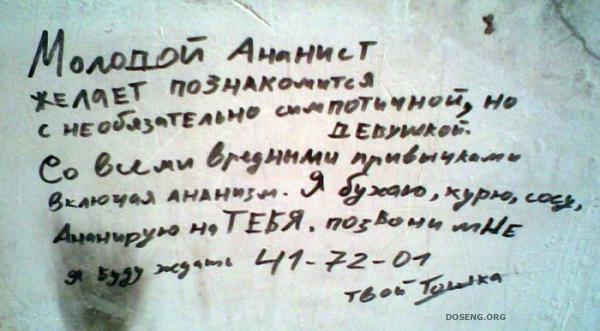 Молодой Ананист
желает познакомится
с необязательно симпотичной, но
девушкой.
Со всеми вредными привычками
включая ананизм. Я бухаю, курю, сосу,
Ананирую на ТЕБЯ. позвони мне
я буду ждать 41-72-01
твой Тошка
DOSENG.ORG